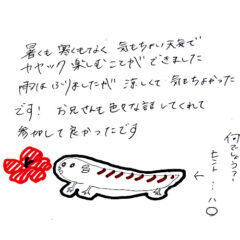 暑くも寒くもなく 気もちいい天気で
カヤック楽しむことができました
雨はふりましたが 涼しくて 気もちよかった
です! お兄さんも色々な話してくれて
参加して良かったです
何でしょう?
ヒント…ハ○